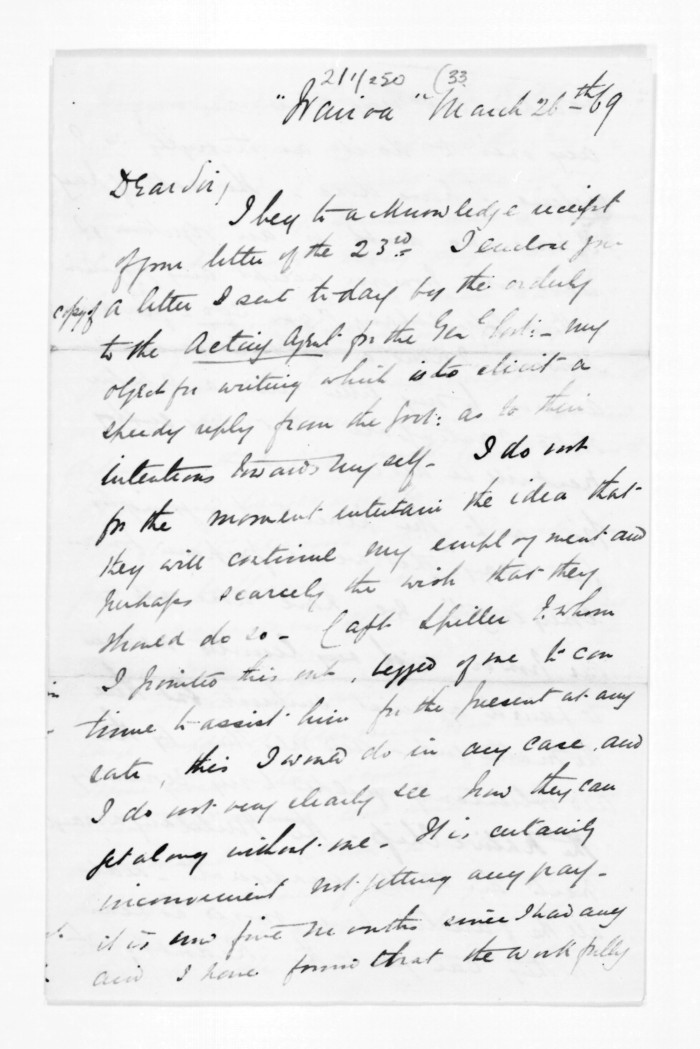 211/250 (33
"Wairoa" March 26th 69
Dear Sir,
I beg to acknowledge receipt
of your letter of the 23rd. I enclose you
copy of a letter I sent today by the orderly
to the Acting Agent for the Genl Govt: - my
object for writing which is to elicit a
speedy reply from the Govt: as to their
intentions towards myself - I do not
for the moment entertain the idea that
they will continue my employment and
perhaps scarcely the wish that they
should do so - Capt Spiller to whom
I pointed this out, begged of me to con
tinue to assist him for the present at any
rate, this I would do in any case, and
I do not very clearly see how they can
get along without me - It is certainly
inconvenient not getting any pay -
it is now five months since I had any
and I have found that the work fully